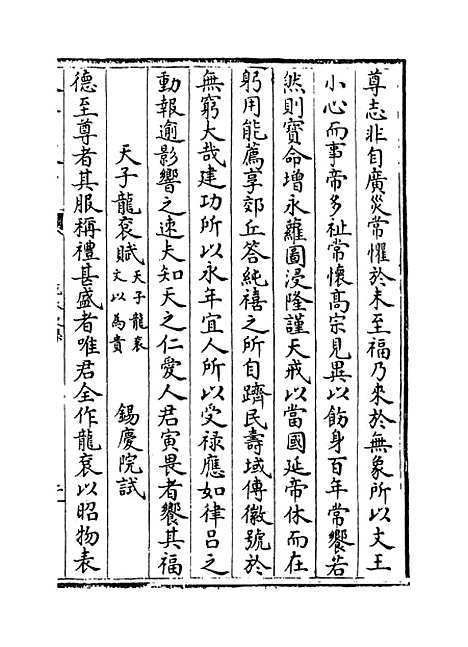 尊志非自廣災常懼於未至福乃來於無象所以文王
小心而事帝多祉常懷高宗見異以飭身百年常饗若
然則寳命增永蘿圖浸隆謹天戒以當國延帝休而在
躬用能薦享郊丘答純禧之所自躋民壽域傳徽號於
無窮大哉建功所以永年宜人所以受禄應如律吕之
動報逾影響之速夫知天之仁愛人君寅畏者饗其福
天子龍衮賦 天子龍衮文以為貴 錫慶院試
德至尊者其服稱禮甚盛者唯君全作龍衮以昭物表